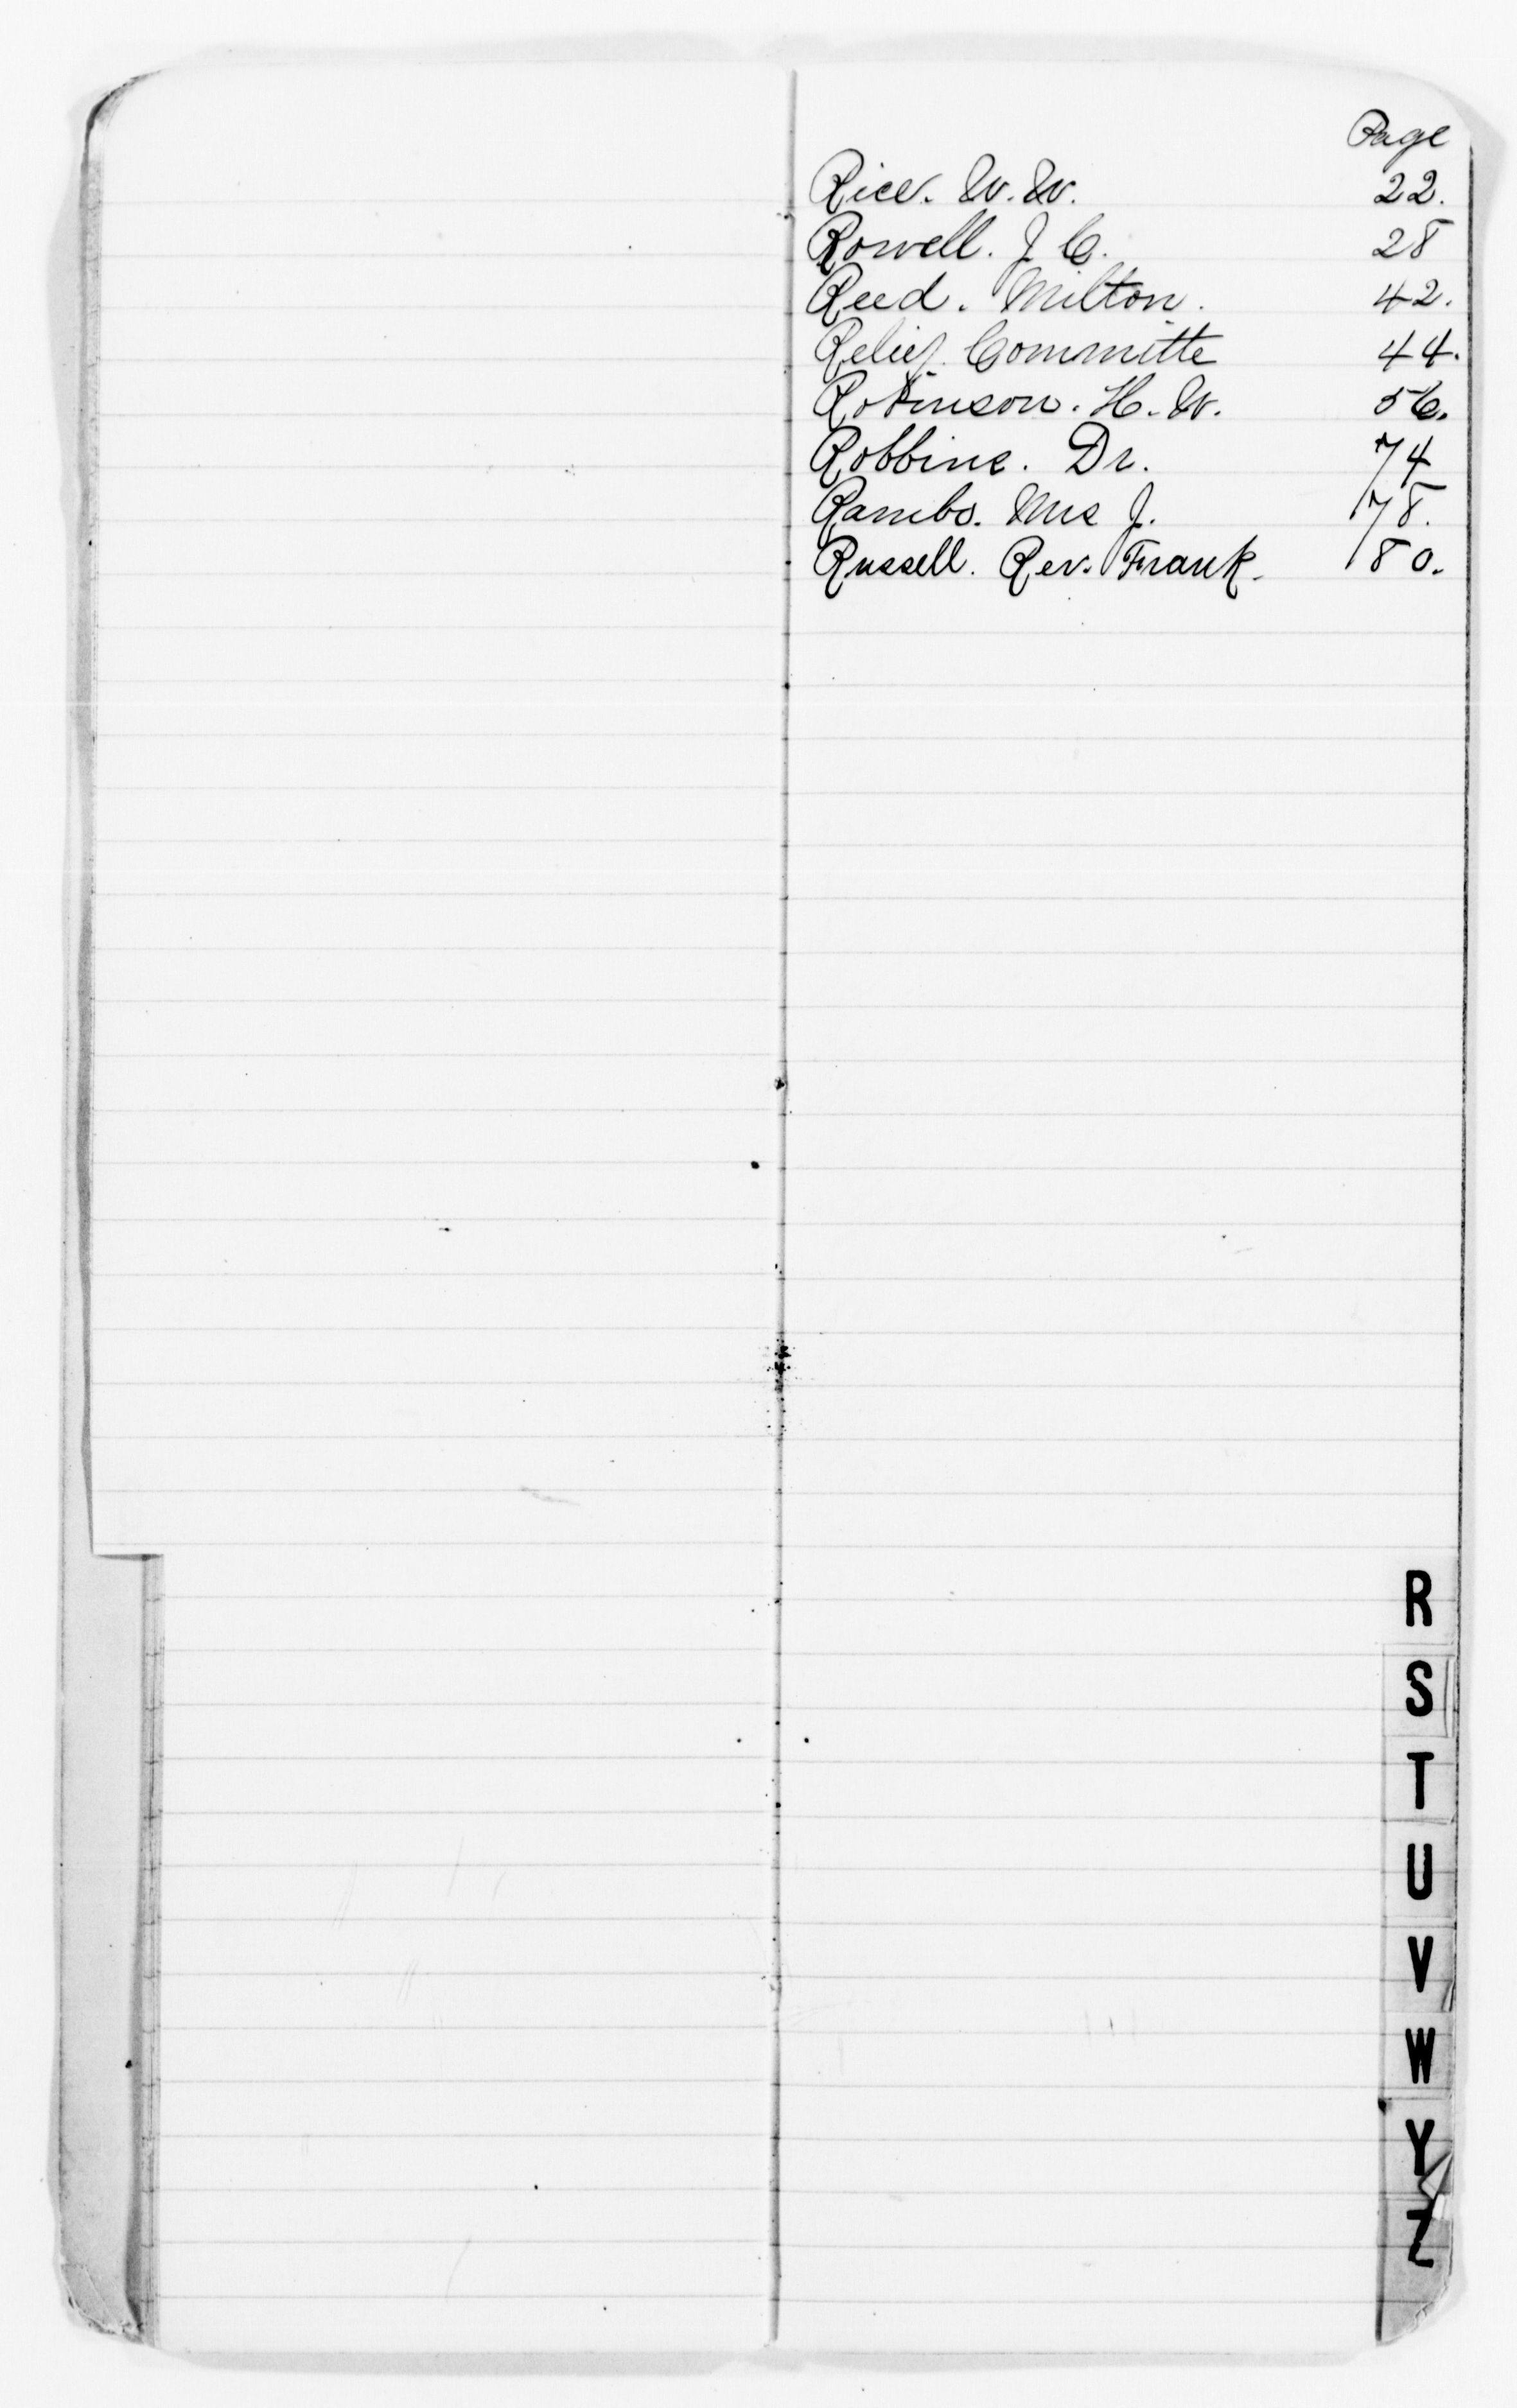 Page
Rice. W. W. 22.
Rowell. J C. 28
Reed. Milton. 42.
Relief. Committe 44.
Robinson. H. W. 56.
Robbins. Dr. 74
Rambo. Mrs J. 78.
Russell. Rev. Frank. 80.
R
S
T
U
V
W
Y
Z